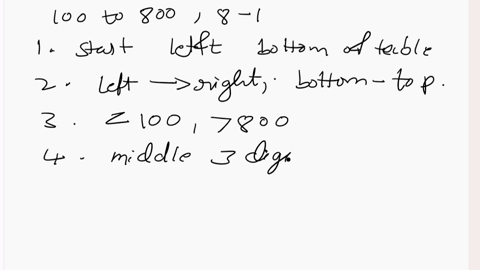 100 to 800, 8-1
1. start left bottom of table
2. left → right, bottom-top.
3. <100, >800
4. middle 3 dig